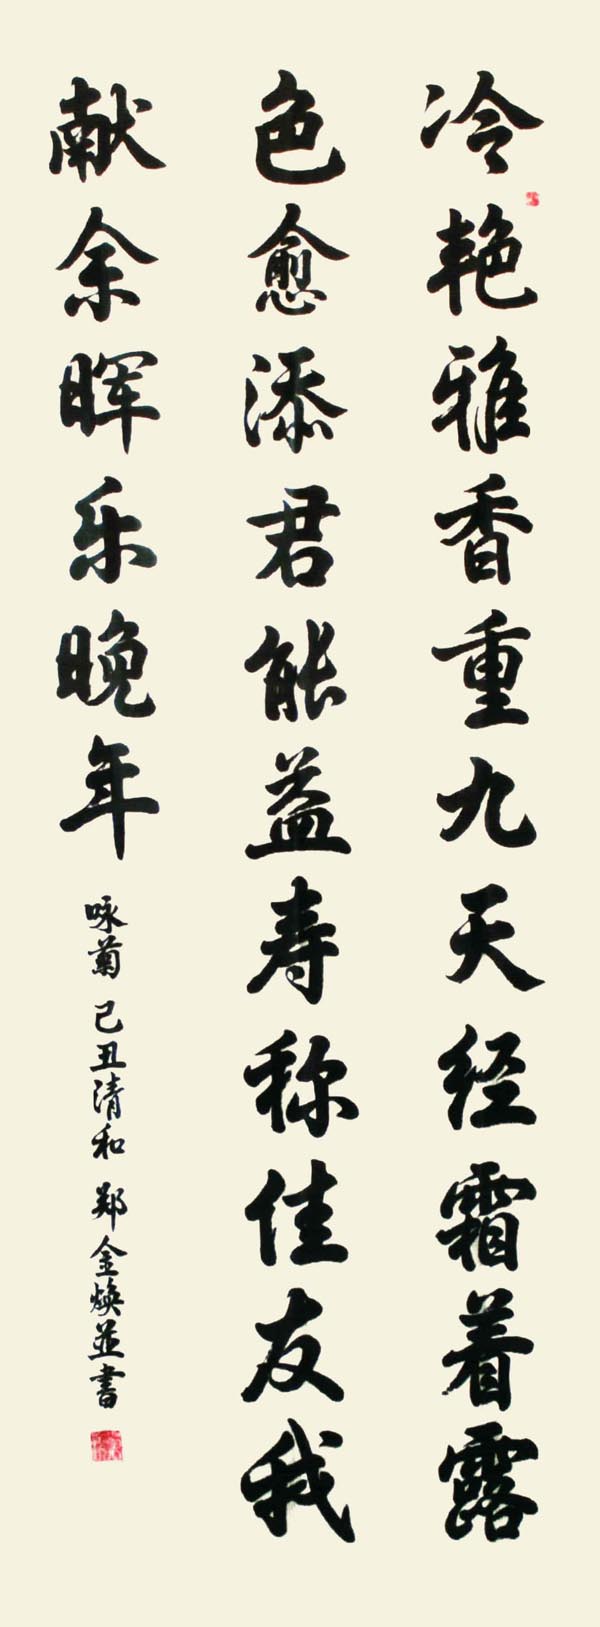 冷艳雅香重九天经霜着露
色愈添君能益寿称佳友我
献余晖乐晚年
咏菊 己丑清和 郑金焕并書